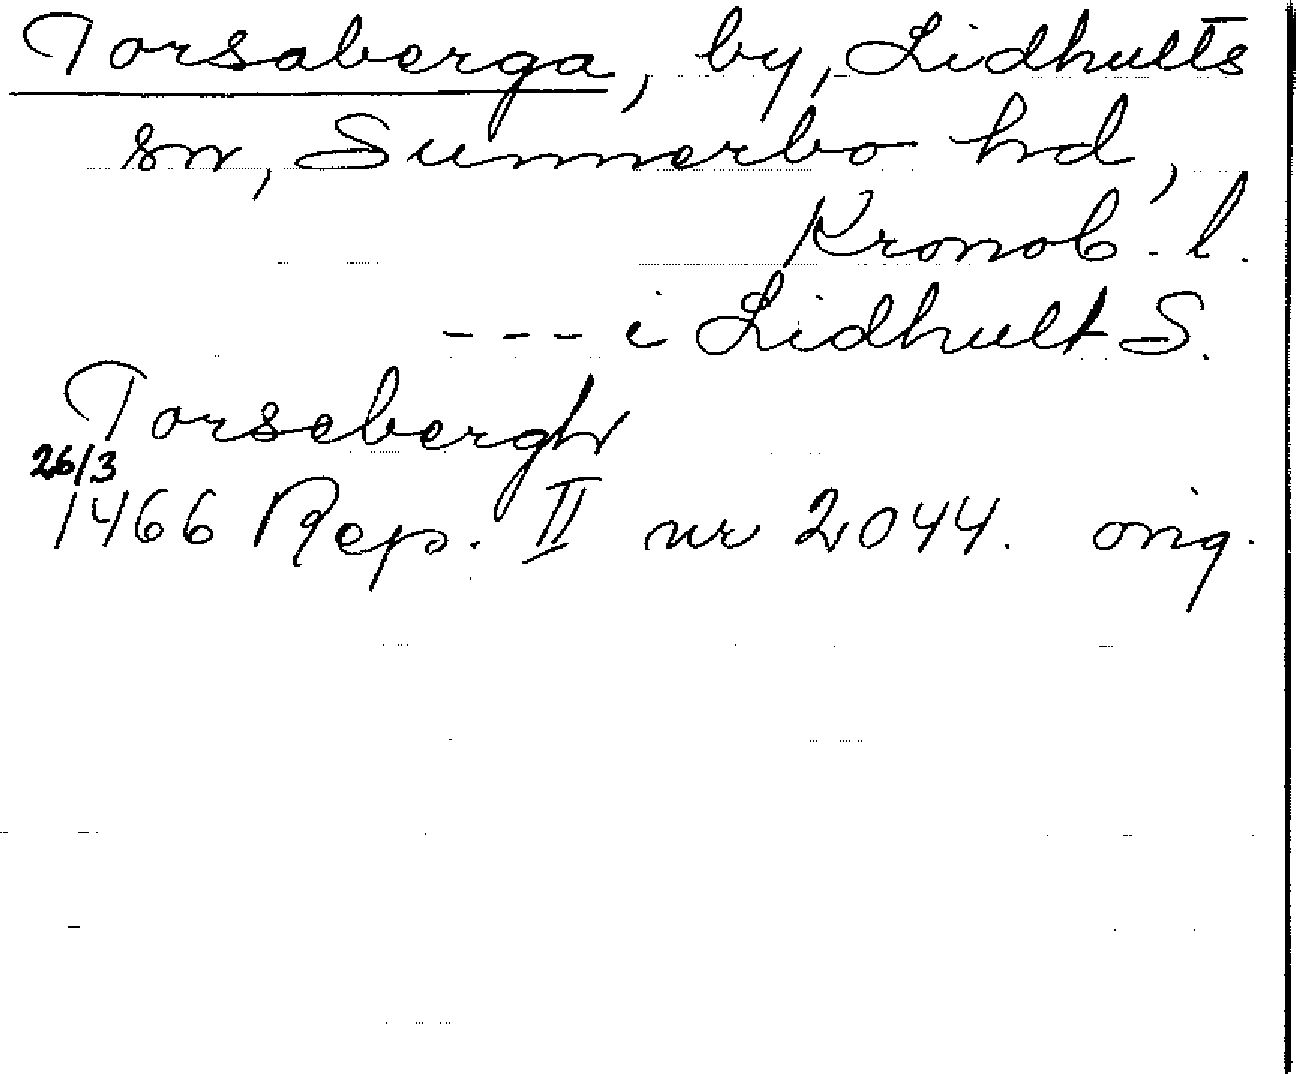 Torsaberga, by, Lidhults
sn, Sunnerbo hd,
Kronob. l.
--- i Lidhult S.
Torsebergh
26/3
1466 Rep. II nr 2044. orig.